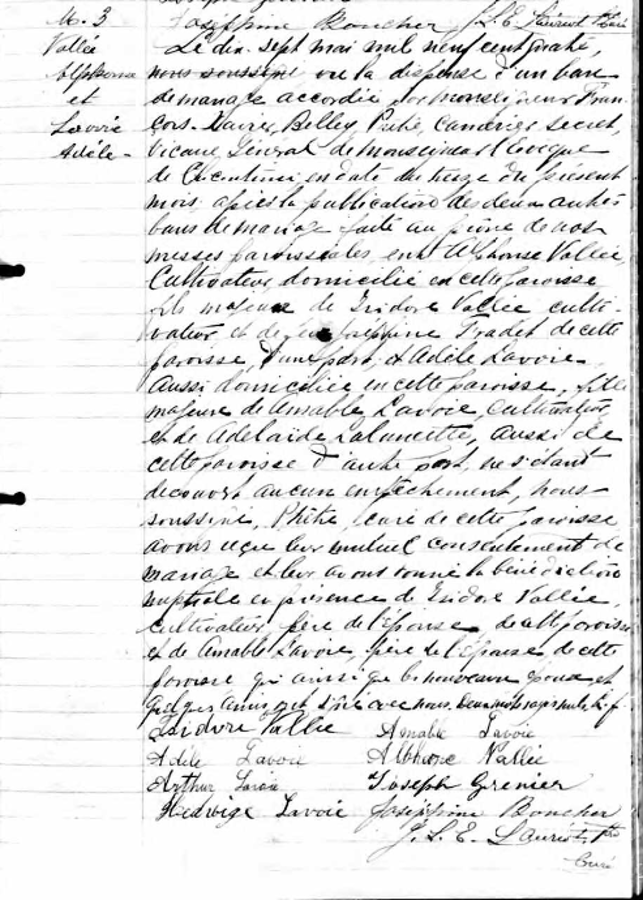 Joséphine Boucher J. E. Lauriot Ptre
M. 3
Vallée
Alphonse
et
Lavoie
Adèle
Le dix sept mai mil neuf cent quatre,
nous soussigné vu la dispense d'un ban
de mariage accordée par Monseigneur Fran
çois-Xavier Belley, Prêtre, camérier secret,
Vicaire Général de Monseigneur l'évêque
de Chicoutimi, en date du treize du présent
mois, après la publication des deux autres
bans de mariage faite au prône de nos
messes paroissiales, entre Alphonse Vallée,
Cultivateur, domicilié en cette paroisse
fils majeur de Isidore Vallée culti-
vateur, et de feue Joséphine Tradet de cette
paroisse, d'une part, et Adèle Lavoie
aussi domiciliée en cette paroisse, fille
majeure de Amable Lavoie, cultivateur,
et de Adelaïde Lalancette, aussi de
cette paroisse d'autre part, ne s'étant
découvert aucun empêchement, nous
soussigné, Prêtre, curé de cette paroisse
avons reçu leur mutuel consentement de
mariage et leur avons donné la bénédiction
nuptiale en présence de Isidore Vallée,
cultivateur, père de l'époux, de cette paroisse
et de Amable Lavoie, père de l'épouse de cette
paroisse qui ainsi que les nouveaux époux et
quelques amis ont signé avec nous. Deux mots rayés nuls. L. f.
Isidore Vallée Amable Lavoie
Adèle Lavoie Alphonse Vallée
Arthur Lavoie Joseph Grenier
Hedwige Lavoie Joséphine Boucher
J. L. E. Lauriot Ptre
Curé